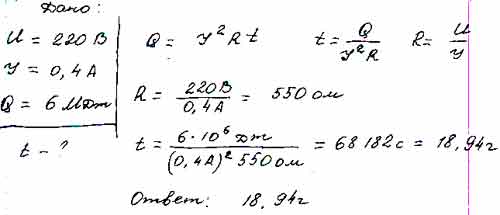 Дано:
U = 220 В
I = 0,4 А
Q = 6 МДж
t - ?
Q = I² R t    t = Q / I² R    R = U / I
R = 220 В / 0,4 А = 550 ом
t = 6·10⁶ Дж / (0,4 А)² 550 ом = 68 182 с = 18,94 г
Ответ: 18,94 г